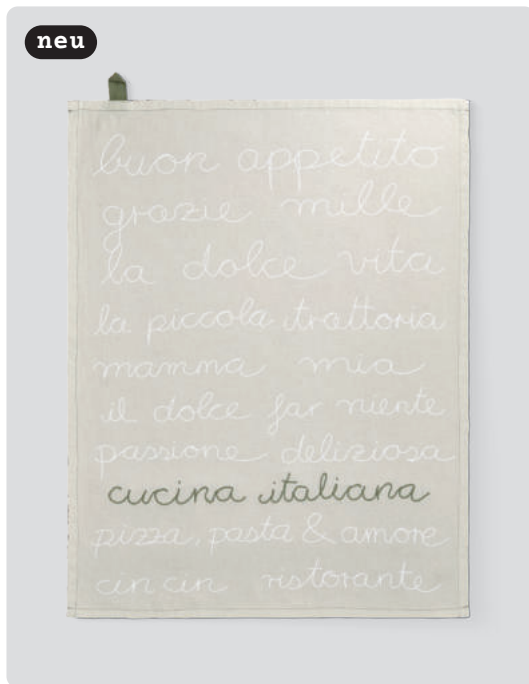 neu
buon appetito
grazie mille
la dolce vita
la piccola trattoria
mamma mia
il dolce far niente
passione deliziosa
cucina italiana
pizza, pasta & amore
cin cin ristorante